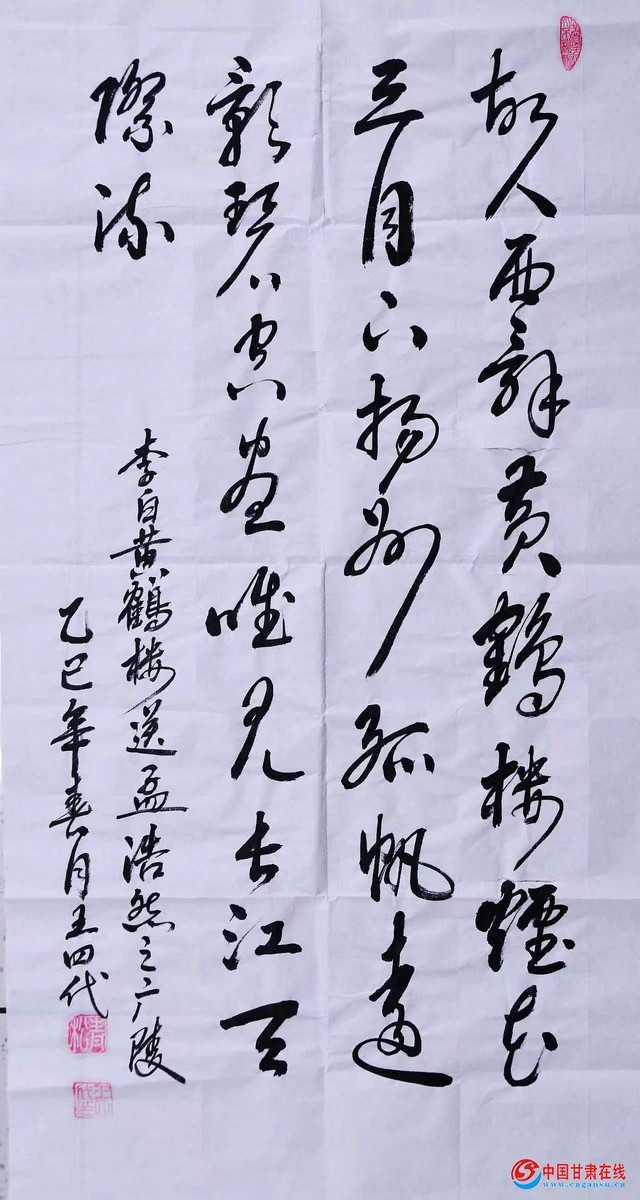 故人西辞黄鹤楼烟花
三月下扬州孤帆远
影碧空尽唯见长江天
际流
李白黄鹤楼送孟浩然之广陵
乙巳年春月王四代
中国甘肃在线
www.cngansu.cn